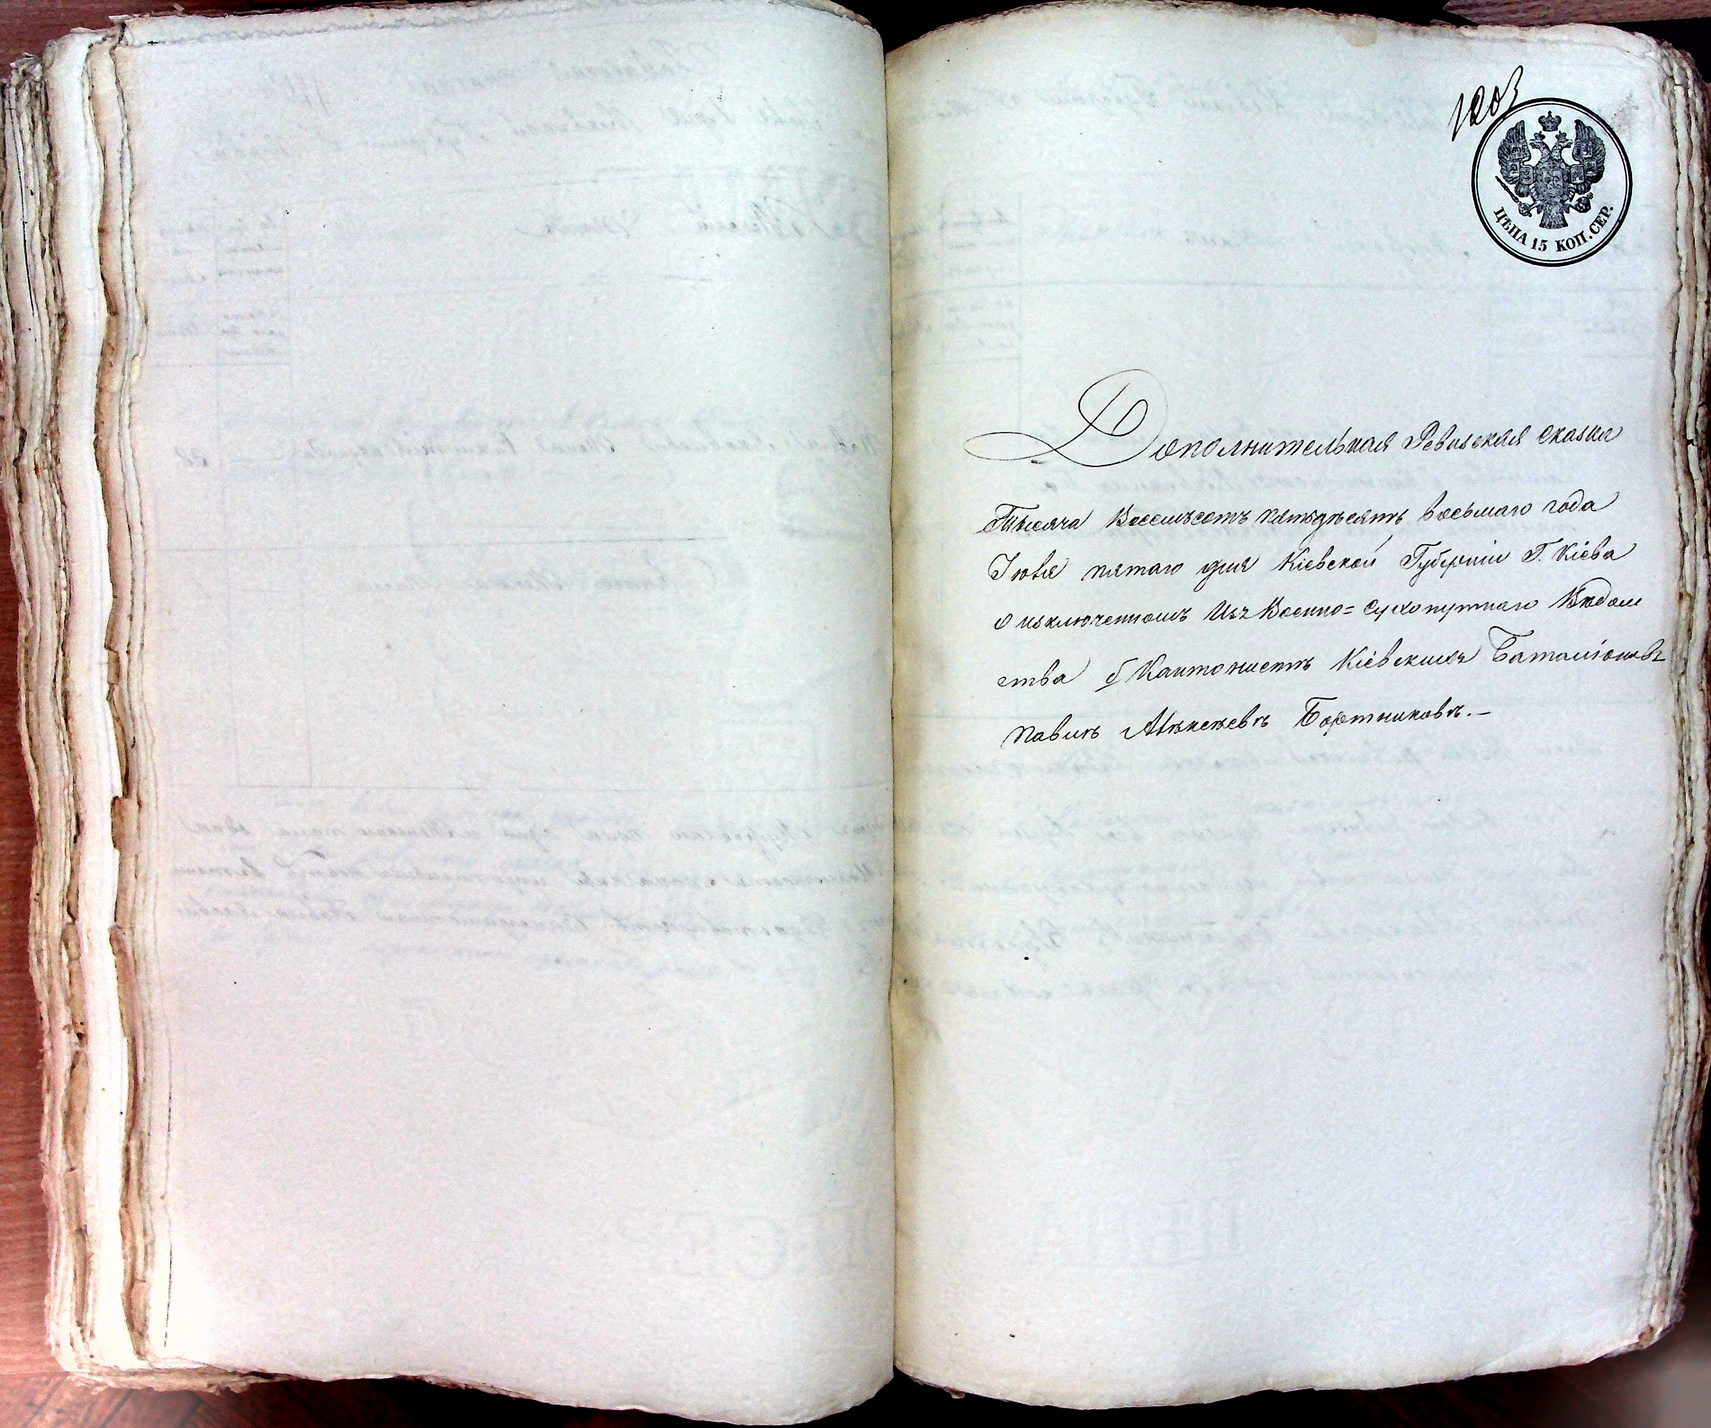 1203
ЦѢНА 15 КОП. СЕР.
Дополнительная Ревизская сказка
Тысяча Восемьсотъ пятьдесятъ восьмаго года
Іюня пятаго дня Кіевской Губерніи Г. Кіева
о изключенномъ Изъ Военно= сухопутнаго Вѣдом
ства Кантонистъ Кіевскихъ Баталіоновъ
Павлъ Алексѣевъ Бортниковъ.—